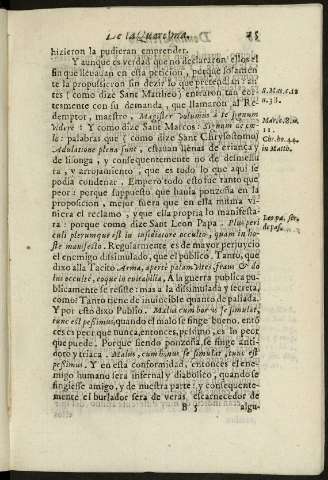 De la Quaresma. 25
hizieron la pudieran emprender.
Y aunque es verdad que no declararon ellos el
fin que lleuauan en esta peticion, porque solamen
te la propusieron sin dezir lo que pretendian: an
tes (como dize Sant Mattheo) entraron tan cor
tesmente con su demanda, que llamaron al Re-
demptor, maestro, Magister volumus à te signum
videre: Y como dize Sant Marcos: Signum de cœ-
lo: palabras que (como dize Sant Chrysostomo)
Adulatione plena sunt, estauan llenas de criança y
de lisonga, y consequentemente no de desmesu
ra, y arrojamiento, que es todo lo que aqui se
podia condenar. Empero todo esto fue tanto que
peor: porque suppuesto que hauia ponzoña en la
proposicion, mejor fuera que en ella misma vi
niera el reclamo, y que ella propria lo manifesta-
ra: porque como dize Sant Leon Papa. Plus peri
culi plerumque est in insidiatore occulto, quam in ho-
ste manifesto. Regularmente es de mayor perjuycio
el enemigo dissimulado, que el publico. Tanto, que
dixo alla Tacito
publicamente se resiste: mas a la dissimulada y secreta,
como: Tanto tiene de inuincible quanto de passada.
Y por esto dixo Publio. Malus cum bonus se simulat,
tunc est pessimus, quando el malo se finge bueno, enton
ces es peor que nunca, entonces, pessimo, es lo peor
que puede. Porque siendo ponzoña, se finge anti-
doto y triaca. Malus, cum bonus se simulat, tunc est
pessimus. Y en esta conformidad, entonces el ene-
migo humano sera infernal y diabolico, quando se
fingiesse amigo, y de nuestra parte: y consequente-
mente el burlador sera de veras escarnecedor de
B 5 algu-
S. Mat. c.12
n. 38.
Marc. 8. n.
11.
Chr. ho. 44.
in Matth.
Leo pa. ser.